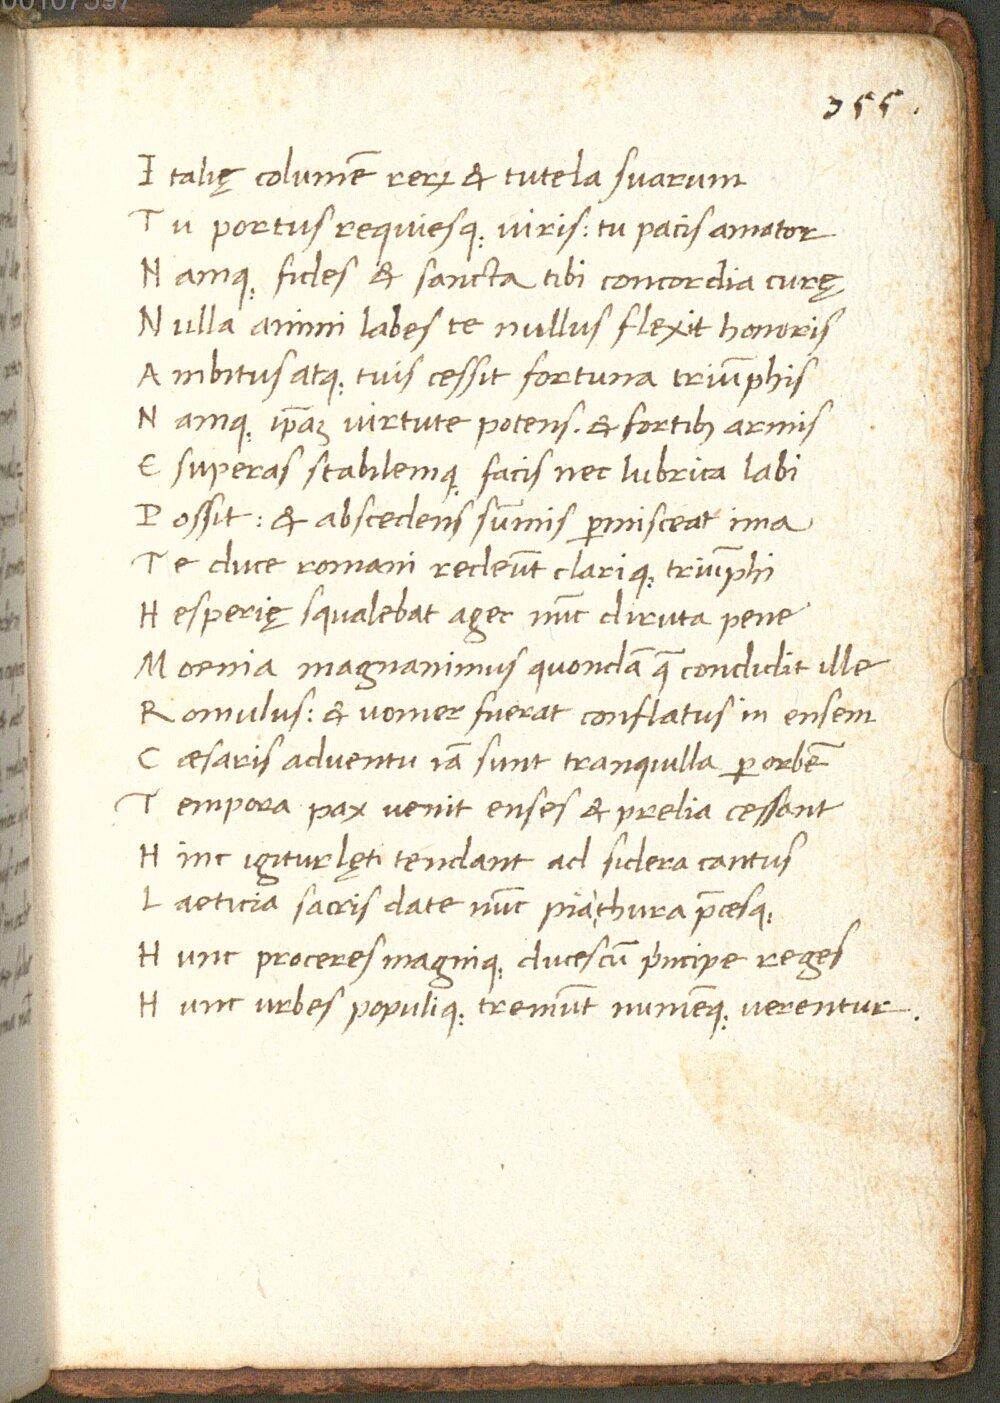 00107597
255.
Italię columē rerꝝ & tutela suarum
Tu portus requiesq; viris: tu pacis amator
Namq; fides & sancta tibi concordia curę
Nulla animi labes te nullus flexit honoris
Ambitus atq; tuis cessit fortuna triūphis
Namq; ip̄aꝫ virtute potens. & fortibꝫ armis
Exsuperas stabilemq; facis nec lubrica labi
Possit: & abscedens sūmis ꝑmisceat ima
Te duce romani redeūt clariq; triūphi
Hesperię squalebat ager nūc diruta pene
Moenia magnanimus quondā q̄ condidit ille
Romulus: & vomer fuerat conflatus in ensem
Cæsaris adventu iā sunt tranquilla ꝑ orbē
Tempora pax venit enses & prelia cessant
Hinc igitur lęti tendant ad sidera cantus
Laeticia sacris date nūc pia thura p̄cesq;
Hunc proceres magniq; duces cū pͥncipe reges
Hunc urbes populiq; tremūt numēq; verentur.